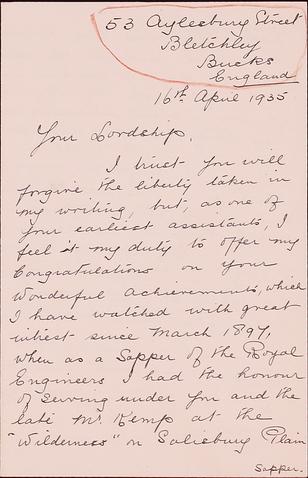 53 Aylesbury Street
Bletchley
Bucks
England
16th April 1935
Your Lordship,
I trust you will
forgive the liberty taken in
my writing, but, as one of
your earliest assistants, I
feel it my duty to offer my
Congratulations on your
Wonderful Achievements, which
I have watched with great
intrest since March 1897,
when as a Sapper of the Royal
Engineers I had the honour
of serving under you and the
late Mr Kemp at the
"Wilderness" on Salisbury Plain
Sapper.